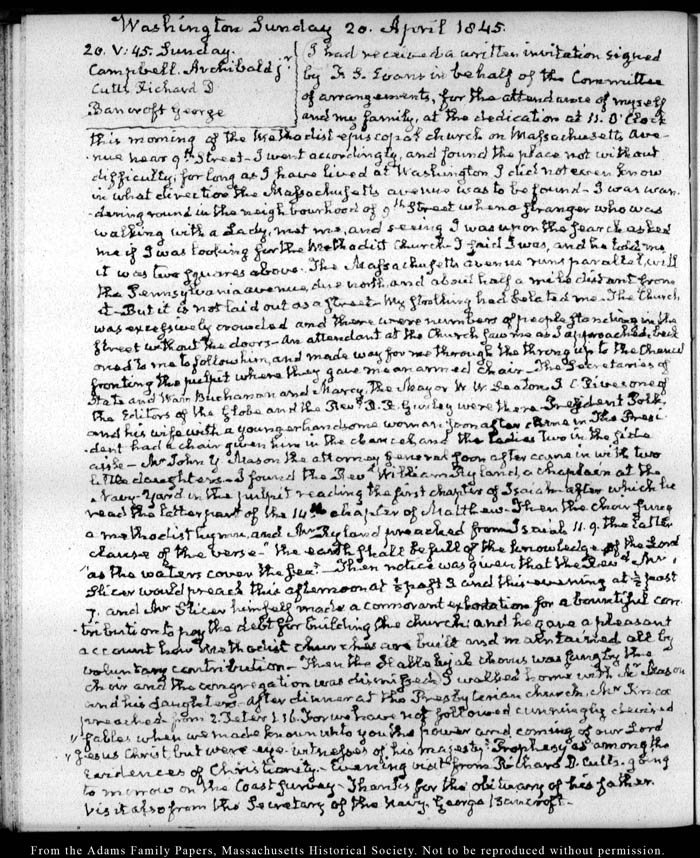 Washington Sunday 20. April 1845.
20. V:45. Sunday.
Campbell. Archibald jr
Cutts Richard D
Bancroft George
I had received a written invitation signed
by F. S. Evans in behalf of the Committee
of arrangements, for the attendance of myself
and my family, at the dedication at 11. O'Clock
this morning of the Methodist episcopal church on Massachusetts Ave-
-nue near 9th Street - I went accordingly, and found the place not without
difficulty; for long as I have lived at Washington I did not even know
in what direction the Massachusetts avenue was to be found - I was wan-
-dering round in the neighbourhood of 9th Street when a stranger who was
walking with a Lady, met me, and seeing I was upon the search asked
me if I was looking for the Methodist Church. I said I was, and he told me
it was two squares above. The Massachusetts avenue runs parallel, with
the Pennsylvania avenue, due north and about half a mile distant from
it - But it is not laid out as a street - My sloothing had belated me. The Church
was excessively crowded and there were numbers of people standing in the
street without the doors - An attendant at the Church saw me as I approached, beck
oned to me to follow him, and made way for me through the throng up to the Chancel
fronting the pulpit where they gave me an armed chair - The Secretaries of
State and War Buchanan and Marcy, the Mayor W. W. Seaton, J. C Rives one of
the Editors of the Globe and the Revd R. R. Gurley were there. President Polk
and his wife with a younger handsome woman soon after came in. The Presi-
-dent had a chair given him in the chancel, and the Ladies two in the side
aisle - Mr John Y Mason the attorney General soon after came in with two
little daughters - I found the Revd William Ryland, a chaplain at the
Navy-Yard in the pulpit reading the first chapter of Isaiah - after which he
read the latter part of the 14th chapter of Matthew. Then the choir sung
a methodist hymn, and Mr Ryland preached from Isaiah 11. 9. the latter
clause of the verse - "the earth shall be full of the knowledge of the Lord
"as the waters cover the sea". Then notice was given that the Revd Mr
Slicer would preach this afternoon at ½ past 3 and this evening at ½ past
7. and Mr Slicer himself made a cormorant exhortation for a bountiful con-
-tribution to pay the debt for building the church: and he gave a pleasant
account how Methodist churches are built and maintained all by
voluntary contribution - Then the Hallelujah chorus was sung by the
choir and the congregation was dismissed. I walked home with Mr Mason
and his daughters - after dinner at the Presbyterian church, Mr Knox
preached from 2. Peter 1. 16. For we have not followed cunningly devised
"fables when we made known unto you the power and coming of our Lord
"Jesus Christ, but were eye-witnesses of his majesty". Prophecy as among the
evidences of Christianity - Evening visit from Richard D. Cutts. going
to morrow on the Coast Survey - Thanks for the obituary of his father.
Visit also from the Secretary of the Navy. George Bancroft -
From the Adams Family Papers, Massachusetts Historical Society. Not to be reproduced without permission.